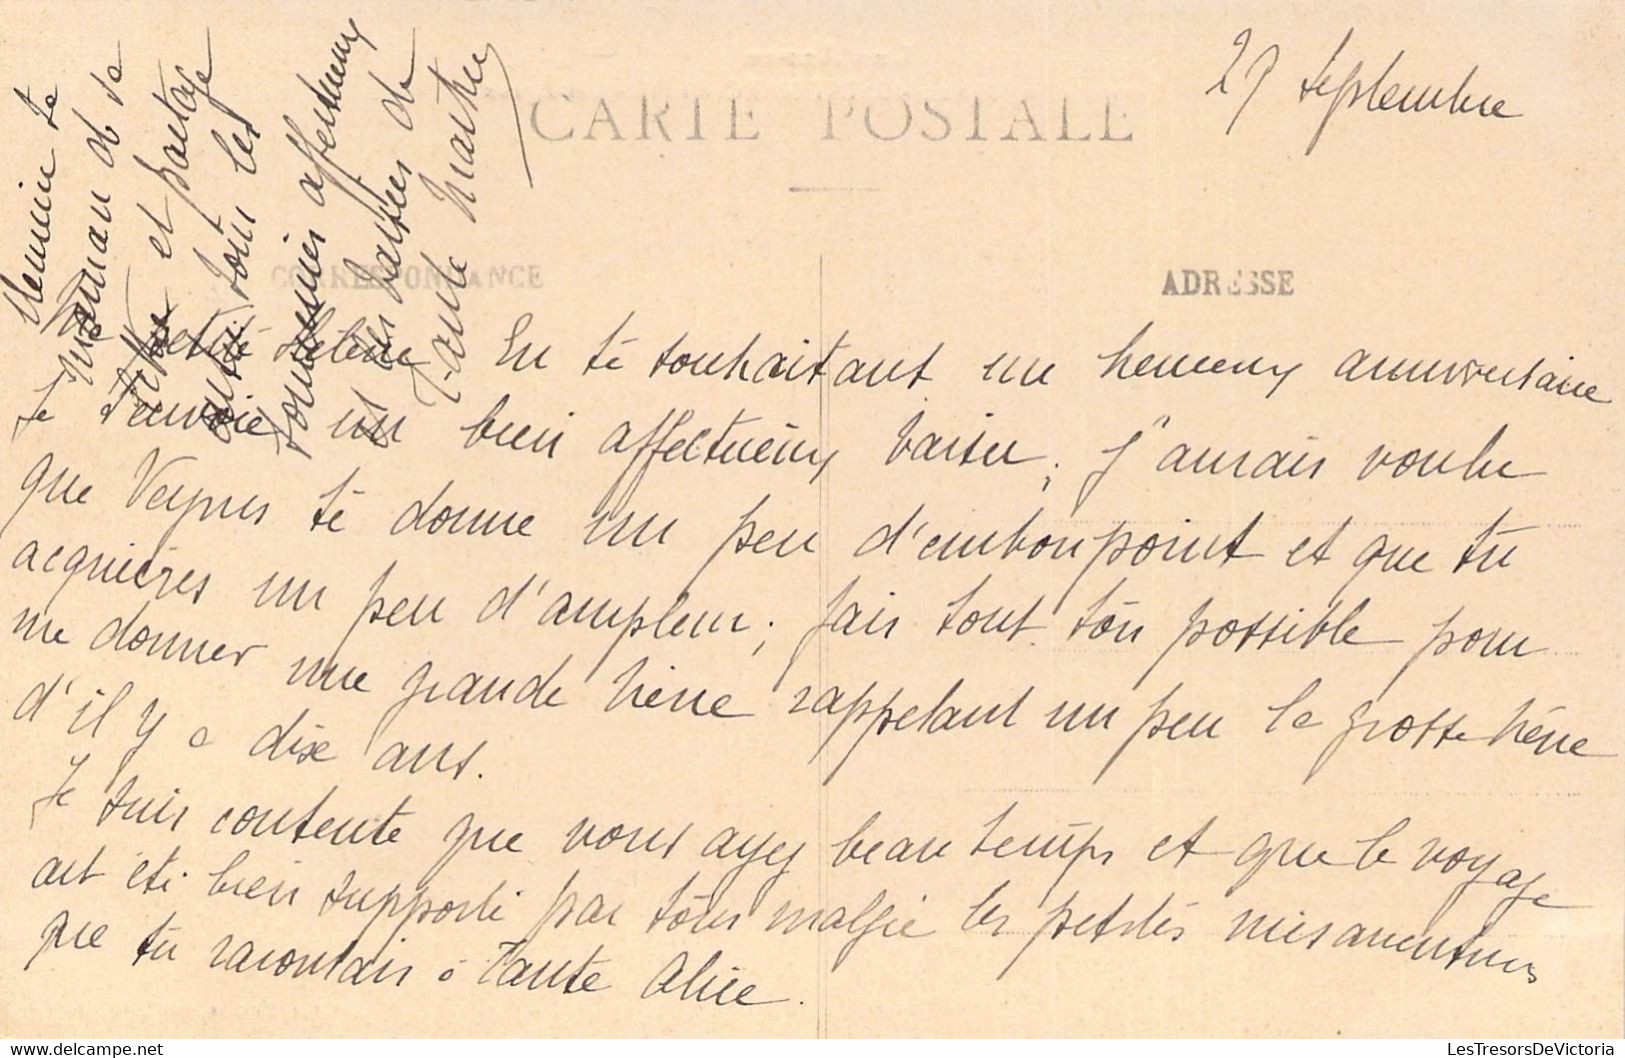 29 Septembre
CARTE POSTALE
CORRESPONDANCE
ADRESSE
Ma petite Hélène En te souhaitant un heureux anniversaire
Je t'envoie un bien affectueux baiser ; J'aurais voulu
que Veyres te donne un peu d'embonpoint et que tu
acquières un peu d'ampleur ; fais tout ton possible pour
me donner une grande nène rappelant un peu la grosse nène
d'il y a dix ans.
Je suis contente que vous ayez beau temps et que le voyage
ait été bien supporté par tous malgré les petites mésaventures
que tu racontais à Tante Alice.
Remercie ta
maman de sa
lettre et partage
entre tous les
souvenirs affectueux
et les baisers de
Tante Marthe
LesTresorsDeVictoria.com